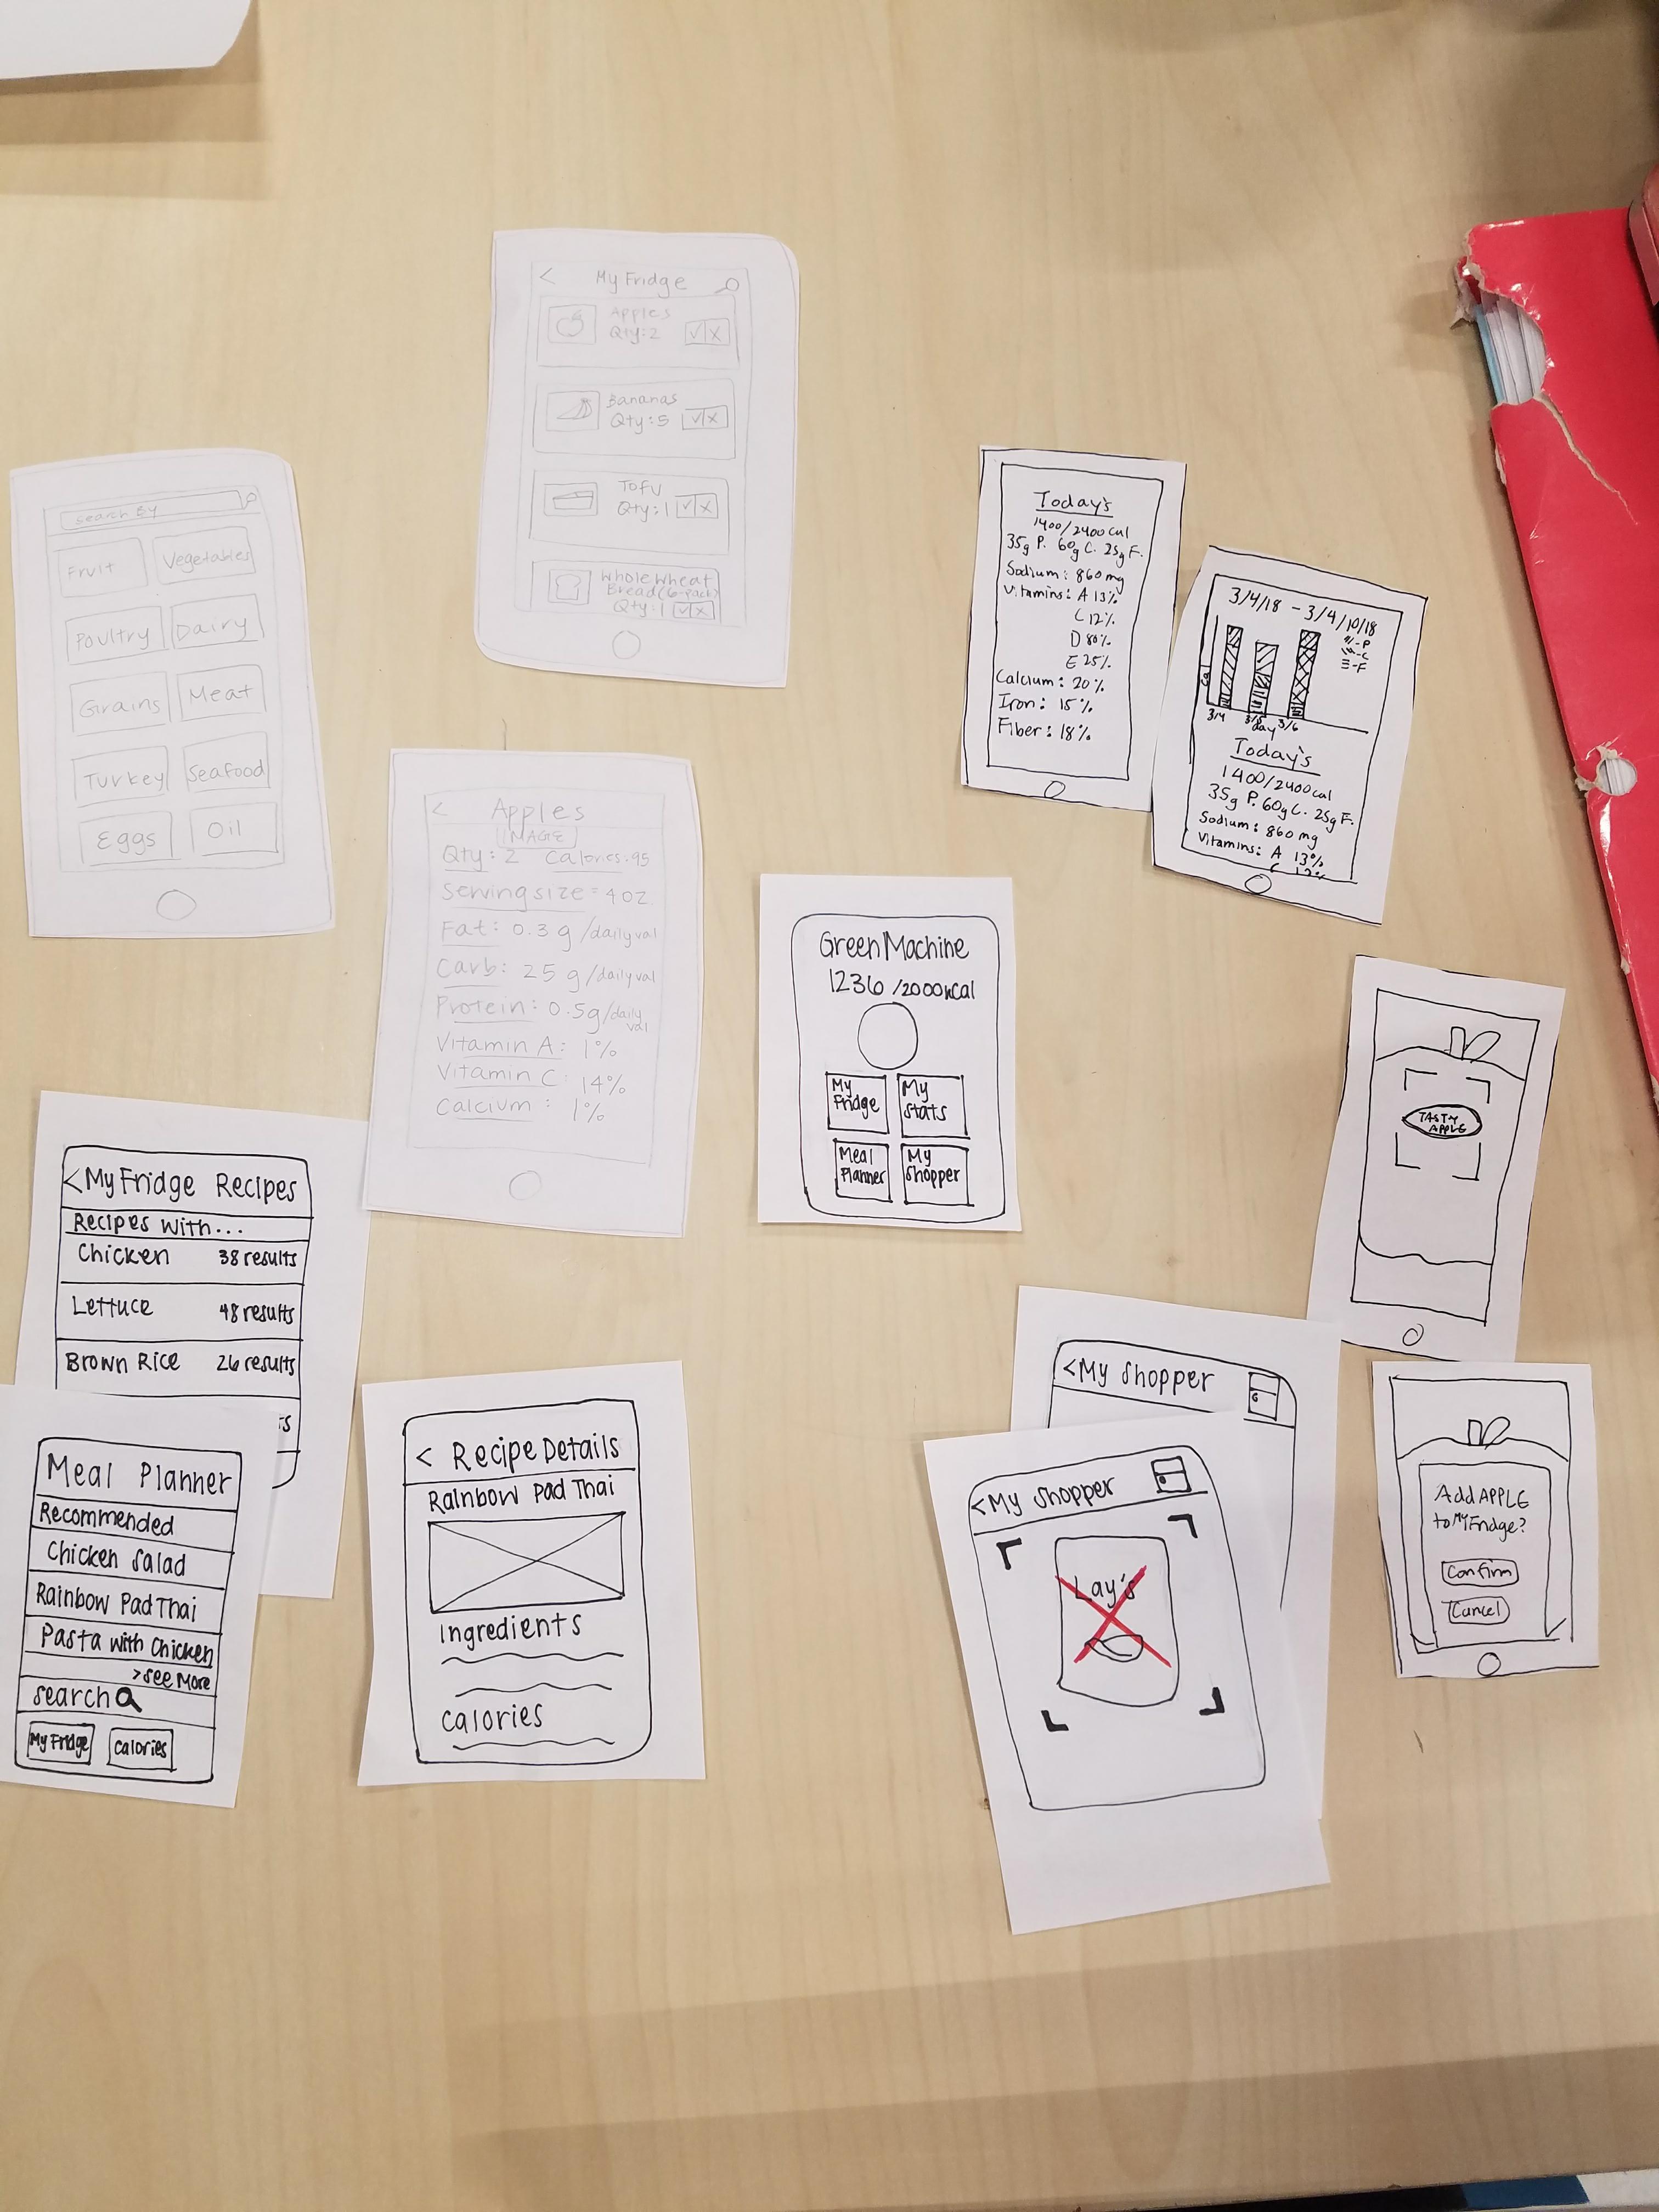 < My Fridge
Apples
Qty: 2
✓ X
Bananas
Qty: 5
✓ X
Tofu
Qty: 1
✓ X
Whole Wheat
Bread (6-pack)
Qty: 1
✓ X
Search By
Fruit
Vegetables
Poultry
Dairy
Grains
Meat
Turkey
Seafood
Eggs
Oil
Today's
1400/2400 cal
35g P. 60g C. 25g F.
Sodium: 860 mg
Vitamins: A 13%
C 12%
D 80%
E 25%
Calcium: 20%
Iron: 15%
Fiber: 18%
3/4/18 - 3/4/10/18
-P
-C
-F
Cal
3/4 3/5 3/6
day
Today's
1400/2400 cal
35g P. 60g C. 25g F.
Sodium: 860 mg
Vitamins: A 13%
C 12%
< Apples
IMAGE
Qty: 2 Calories: 95
Serving size = 4 oz
Fat: 0.3 g /daily val
Carb: 25 g /daily val
Protein: 0.5g /daily val
Vitamin A: 1%
Vitamin C: 14%
Calcium: 1%
Green Machine
1236 /2000 kcal
My Fridge
My Stats
Meal Planner
My Shopper
TASTY
APPLE
< My Fridge Recipes
Recipes with...
Chicken 38 results
Lettuce 48 results
Brown Rice 26 results
ts
Meal Planner
Recommended
Chicken Salad
Rainbow Pad Thai
Pasta with Chicken
> See More
Search
My Fridge
Calories
< Recipe Details
Rainbow Pad Thai
Ingredients
Calories
< My Shopper
< My Shopper
Lay's
Add APPLE
to My Fridge?
Confirm
Cancel